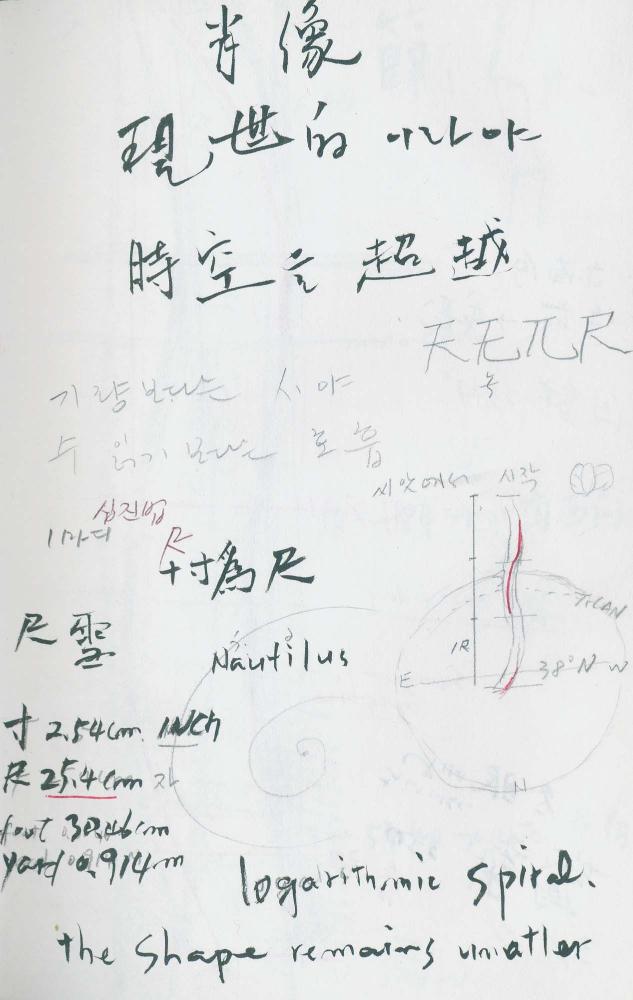 肖像
現世的 이라야
時空을 超越
天 π 尺
기량보다는 시야
수 읽기 보다는 호흡
씨앗에서 시작
십진법
1마디
尺
十寸爲尺
尺靈
Nautilus
1R
E
38°N W
N
寸 2.54cm INCH
尺 25.4cm 자
foot 30.46cm
yard 0.914m
logarithmic spiral.
the shape remains unatler